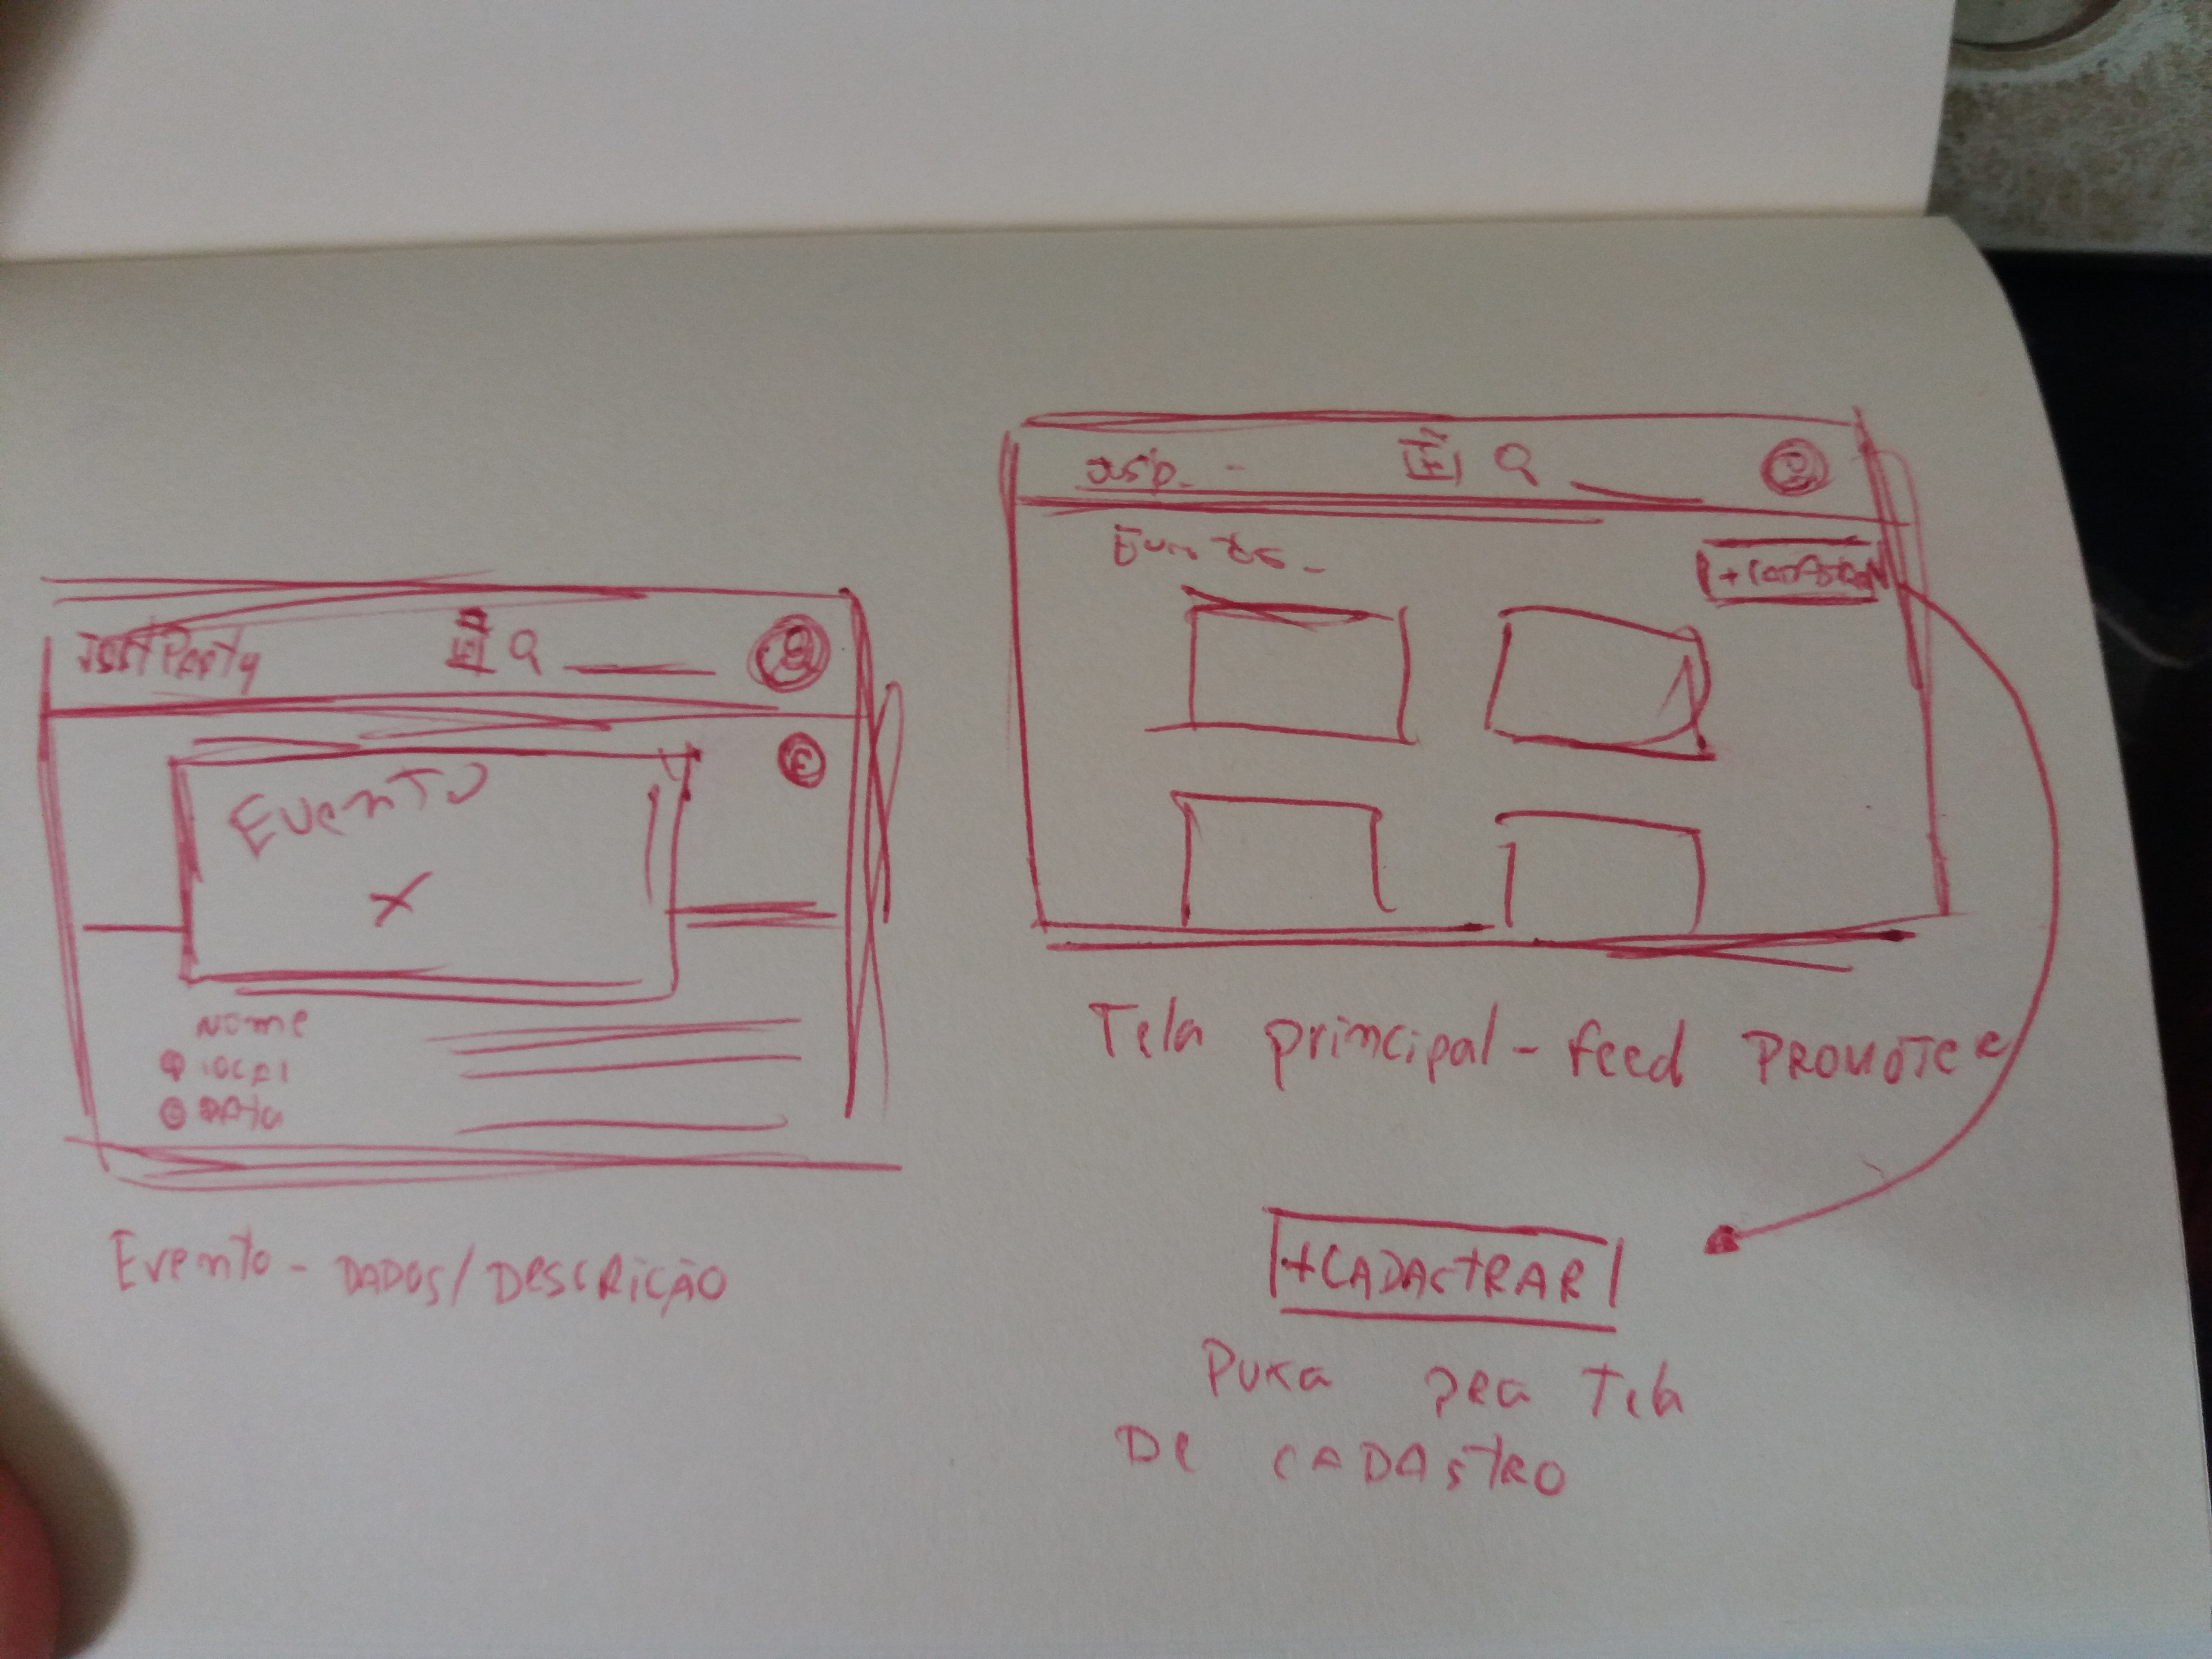 Evento
X
Nome
local
Data
Evento - DADOS/DESCRIÇÃO
Eventos
Tela principal - feed PROMOTER
+CADASTRAR
Puxa pra Tela
De CADAStRO